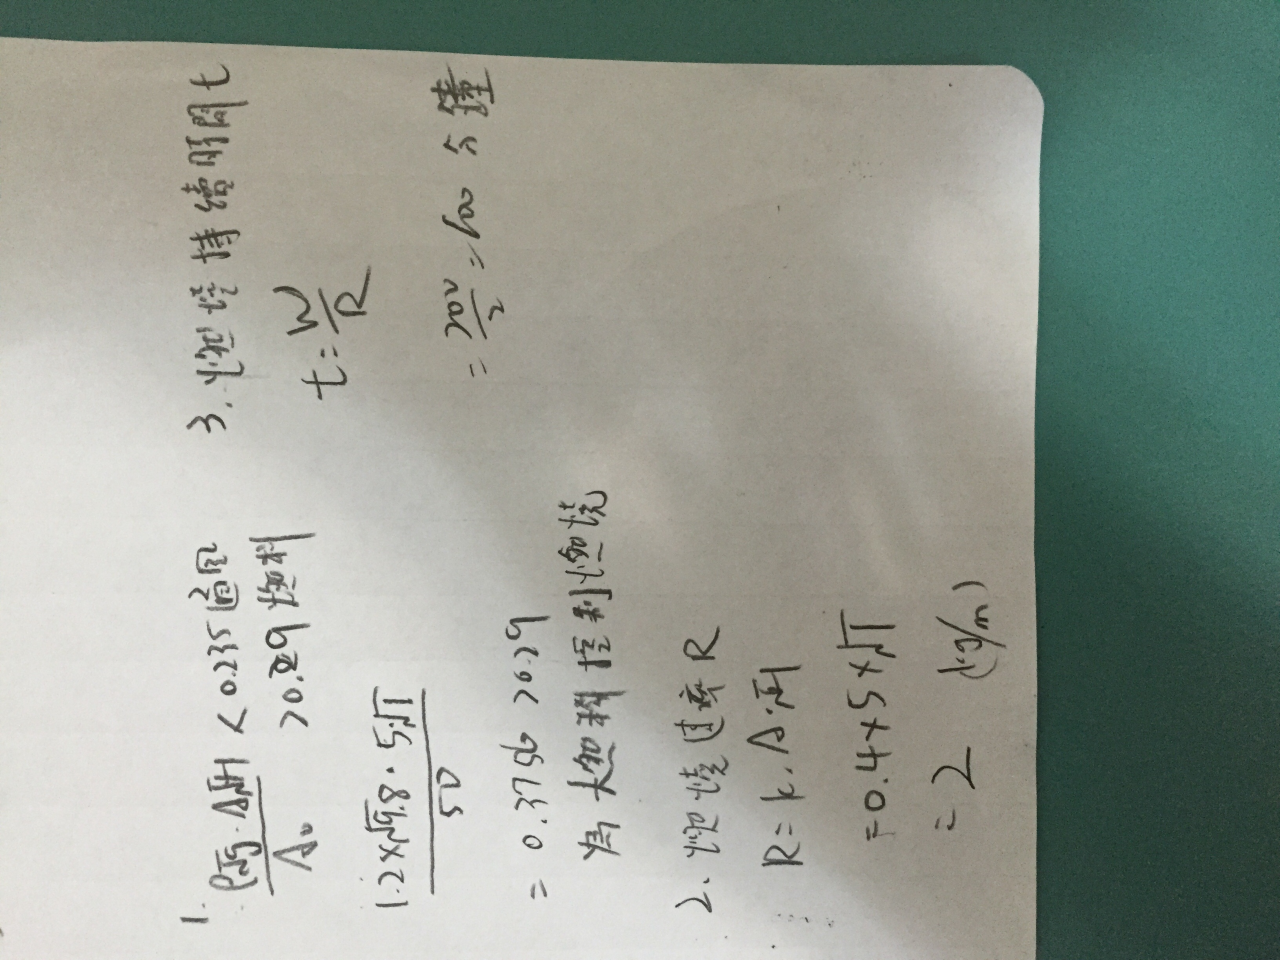 1. ρ√g·A√H / A₀ < 0.235 通風
> 0.29 燃料
1.2×√9.8·5√1 / 50
= 0.3756 > 0.29
為燃料控制燃燒
2. 燃燒速率 R
R = k·A·√H
= 0.4×5×√1
= 2 (kg/m)
3. 燃燒持續時間 t
t = W/R
= 200/2 = 100 分鐘